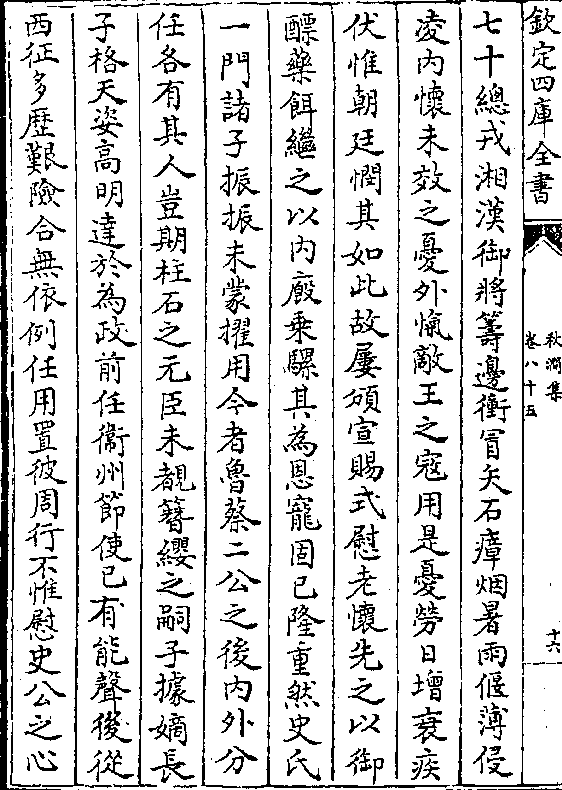 欽定四庫全書
秋澗集
卷八十五
十六
七十總戎湘漢御將籌邊衝冒矢石瘴烟暑雨偃薄侵
凌內懷未效之憂外愾敵王之寇用是憂勞日增衰疾
伏惟朝廷憫其如此故屢頒宣賜式慰老懷先之以御
醥藥餌繼之以內廐乗騾其為恩寵固已隆重然史氏
一門諸子振振未蒙擢用今者魯蔡二公之後內外分
任各有其人豈期柱石之元臣未覩簪纓之嗣子據嫡長
子格天姿高明達於為政前任衞州節使已有能聲後從
西征多歴艱險合無依例任用置彼周行不惟慰史公之心